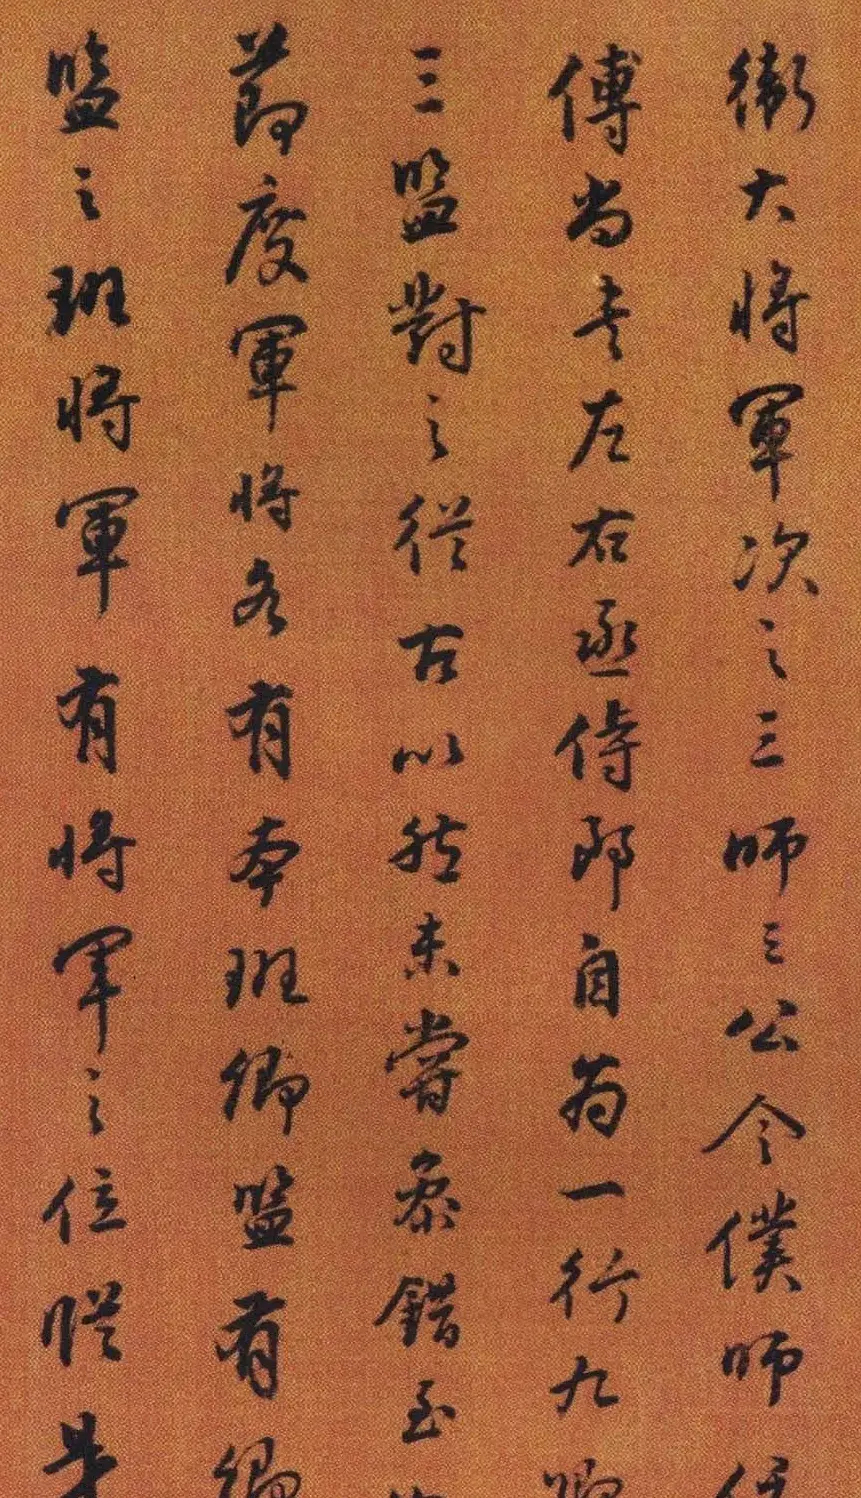 衛大將軍次之三師三公令僕師
傅尚書左右丞侍郎自為一行九卿
三監對之從古以然未嘗參錯至
節度軍將各有本班卿監有卿
監之班將軍有將軍之位縱是